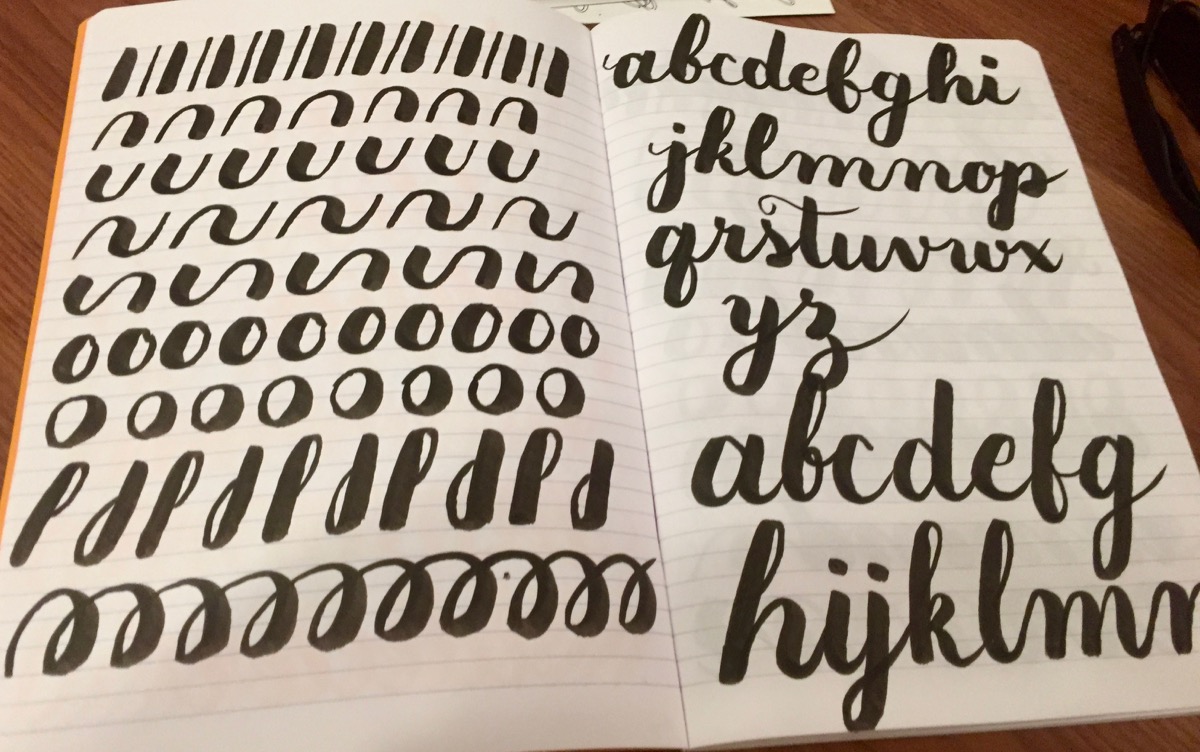 abcdefghi
jklmnop
qrstuvwx
yz
abcdefg
hijklmn